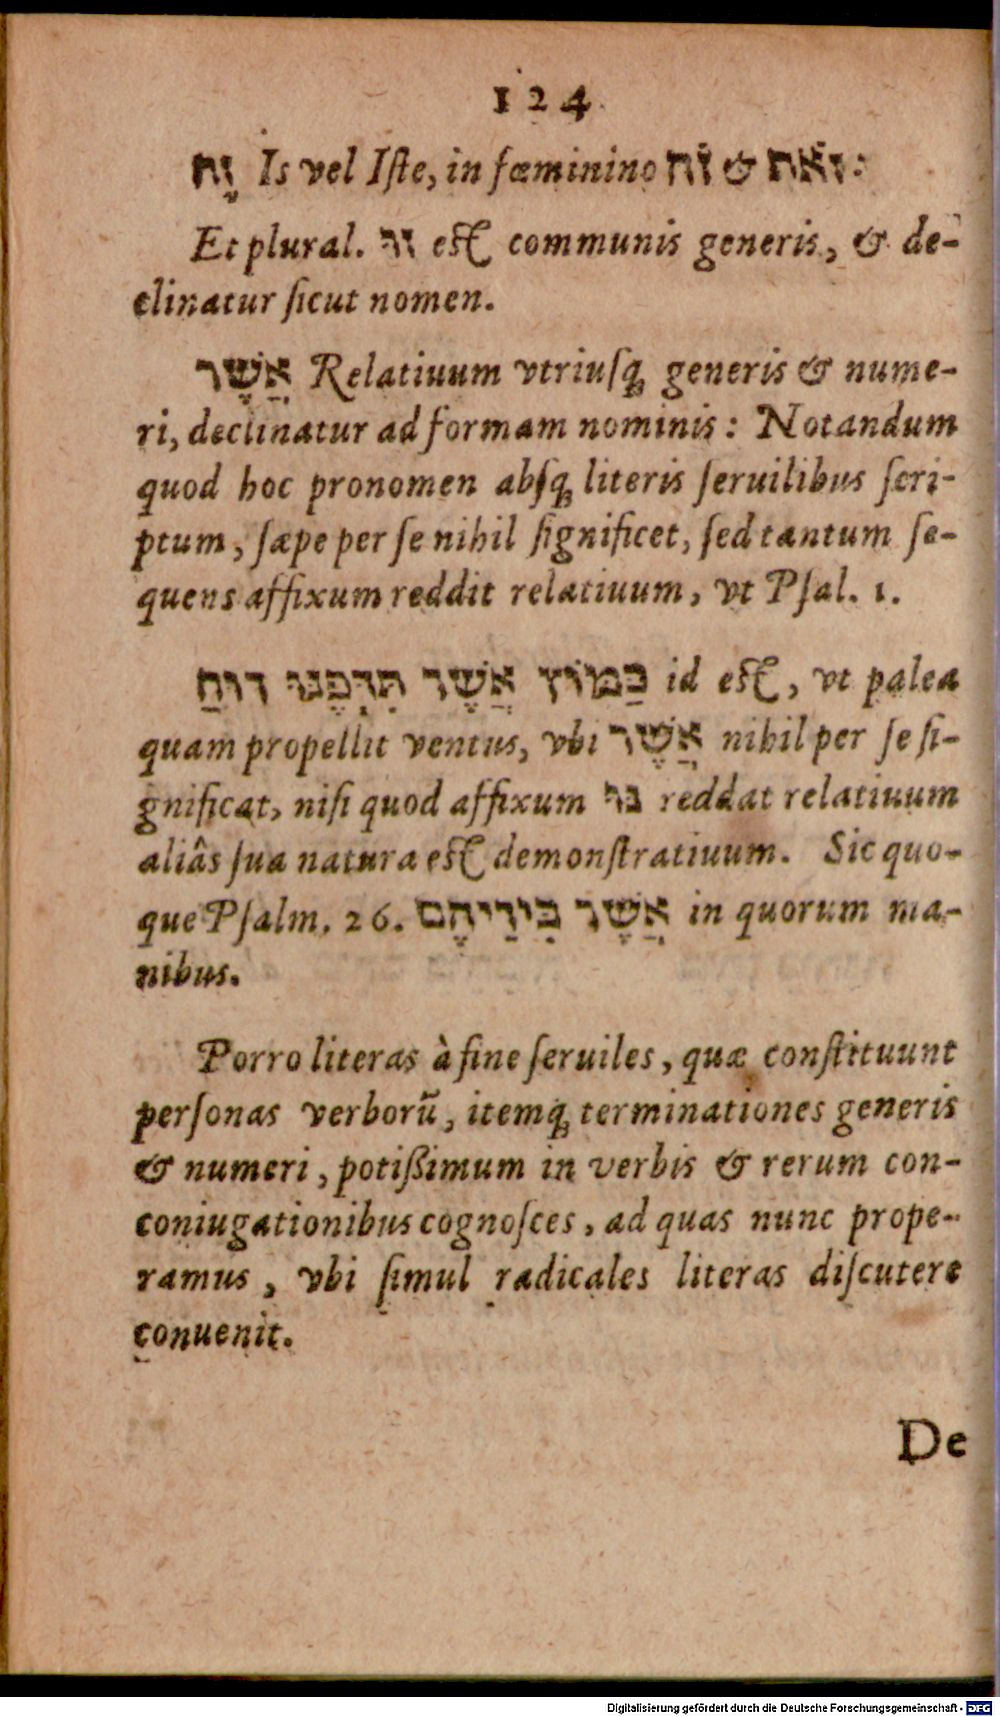 124
זֶה Is vel Iſte, in fœminino זֹה & זֹאת:
Et plural. זוּ eſt communis generis, & de-
clinatur ſicut nomen.
אֲשֶׁר Relatiuum vtriuſq; generis & nume-
ri, declinatur ad formam nominis: Notandum
quod hoc pronomen abſq; literis ſeruilibus ſcri-
ptum, ſæpe per ſe nihil ſignificet, ſed tantum ſe-
quens affixum reddit relatiuum, vt Pſal. 1.
כַּמּוֹץ אֲשֶׁר תִּדְּפֶנּוּ רוּחַ id eſt, vt palea
quam propellit ventus, vbi אֲשֶׁר nihil per ſe ſi-
gnificat, niſi quod affixum נּוּ reddat relatiuum
aliâs ſua natura eſt demonſtratiuum. Sic quo-
que Pſalm. 26. אֲשֶׁר בִּידֵיהֶם in quorum ma-
nibus.
Porro literas à fine ſeruiles, quæ conſtituunt
perſonas verborũ, itemq; terminationes generis
& numeri, potißimum in verbis & rerum con-
coniugationibus cognoſces, ad quas nunc prope-
ramus, vbi ſimul radicales literas diſcutere
conuenit.
De
Digitalisierung gefördert durch die Deutsche Forschungsgemeinschaft - DFG